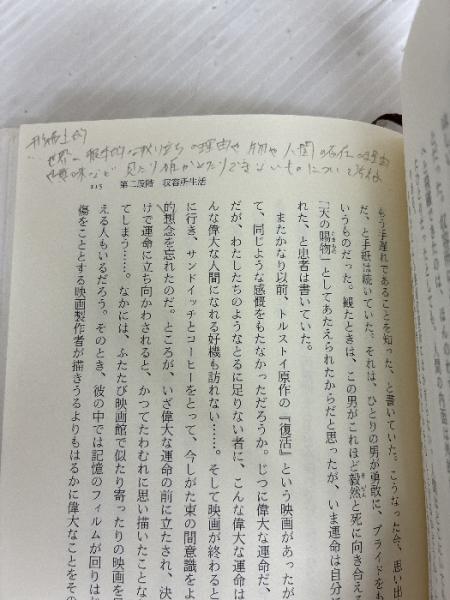 形而上的
世界の根本的な成り立ちの理由や 物や人間の存在の理由
や意味など 見たり確かめたりできないものについて考える
115 第二段階 収容所生活
もう手遅れであることを知った、と書いていた。こうなった今、思い出
だ、と手紙は続いていた。それは、ひとりの男が勇敢に、プライドをも
いうものだった。観たときは、この男がこれほど毅然と死に向き合える
「天の賜物」としてあたえられたからだと思ったが、いま運命は自分
れた、と患者は書いていた。
またかなり以前、トルストイ原作の『復活』という映画があったが
て、同じような感慨をもたなかっただろうか。じつに偉大な運命だ、
だが、わたしたちのようなとるに足りない者に、こんな偉大な運命は
んな偉大な人間になれる好機も訪れない……。そして映画が終わると
に行き、サンドイッチとコーヒーをとって、今しがた束の間意識をよ
的想念を忘れたのだ。ところが、いざ偉大な運命の前に立たされ、決
けで運命に立ち向かわされると、かつてたわむれに思い描いたことな
てしまう……。なかには、ふたたび映画館で似たり寄ったりの映画を
える人もいるだろう。そのとき、彼の中では記憶のフィルムが回りは
傷をこととする映画製作者が描きうるよりもはるかに偉大なことをその